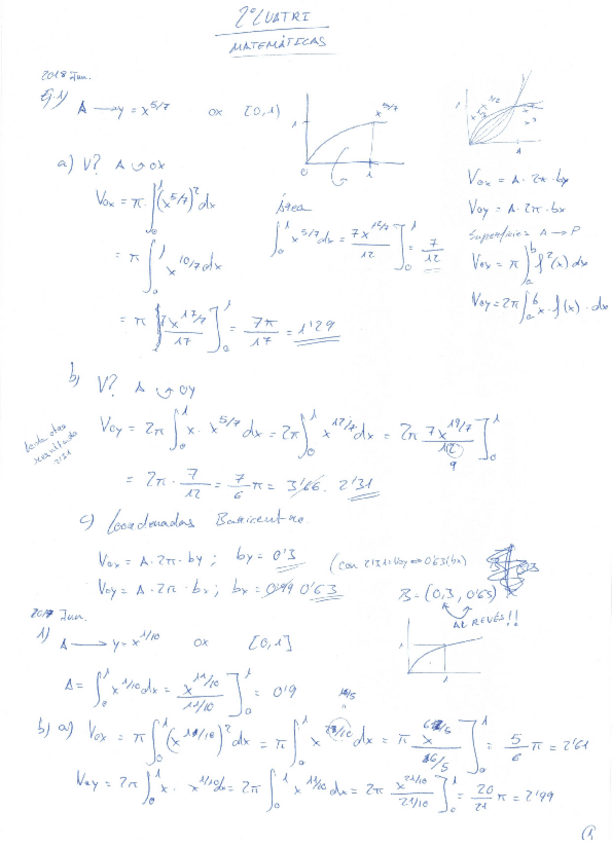 2º CUATRI
MATEMÁTICAS
2018 Jun.
Ej. 1) A → y = x^5/7 ox [0,1)
a) V? A ↺ ox
Vox = π ∫₀¹ (x^5/7)² dx
= π ∫₀¹ x^10/7 dx
= π 7x^17/7 / 17 ]₀¹ = 7π/17 = 1'29
Área
∫₀¹ x^5/7 dx = 7x^12/7 / 12 ]₀¹ = 7/12
Vox = A · 2π · by
Voy = A · 2π · bx
Superficie = A → P
Vox = π ∫ₐᵇ f²(x) dx
Voy = 2π ∫ₐᵇ x · f(x) · dx
b) V? A ↺ oy
Voy = 2π ∫₀¹ x · x^5/7 dx = 2π ∫₀¹ x^12/7 dx = 2π 7x^19/7 / 12 ]₀¹
9
= 2π · 7/12 = 7/6 π = 3'66. 2'31
c) Coordenadas Baricentro
Vox = A · 2π · by ; by = 0'3 (con 2'31=Voy ⇒ 0'63(bx)
Voy = A · 2π · bx ; bx = 0'99 0'63
B = (0,3, 0'63)
AL REVÉS!!
2017 Jun.
1) A → y = x^1/10 ox [0,1]
A = ∫₀¹ x^1/10 dx = x^11/10 / 11/10 ]₀¹ = 0'9
b) a) Vox = π ∫₀¹ (x^1/10)² dx = π ∫₀¹ x^2/10 dx = π x^6/5 / 6/5 ]₀¹ = 5/6 π = 2'61
Voy = 2π ∫₀¹ x · x^1/10 dx = 2π ∫₀¹ x^11/10 dx = 2π x^21/10 / 21/10 ]₀¹ = 20/21 π = 2'99